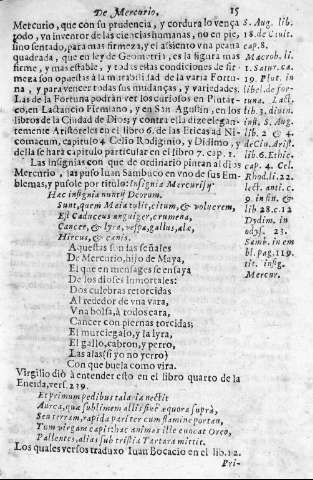 De Mercurio. 15
Mercurio, que con su prudencia, y cordura lo vença
todo, vn inuentor de las ciencias humanas, no en pie,
sino sentado, para mas firmeza, y el assiento vna peana
quadrada, que en ley de Geometria, es la figura mas
firme, y mas estable, y todas estas condiciones de fir-
meza son opuestas à la instabilidad de la varia Fortu-
na, y para vencer todas sus mudanças, y variedades.
Las de la Fortuna podràn ver los curiosos en Plutar-
co, en Lactancio Firmiano, y en San Agustin, en los
libros de la Ciudad de Dios; y contra ella dize elegan-
temente Aristoteles en el libro 6. de las Eticas ad Ni-
comacum, capitulo 4 Celio Rodiginio, y Didimo, y
della se harà capitulo particular en el libro 7. cap. 1.
Las insignias con que de ordinario pintan al dios
Mercurio, las puso Iuan Sambuco en vno de sus Em-
blemas, y pusole por titulo: Insignia Mercurij
Hac insignia nuntij Deorum.
Sunt, quem Maia tulit, citum, & volucrem,
Est Caduceus anguiger, crumena,
Cancer, & lyra, vespa, gallus, alæ,
Hircus, & canis.
Aquestas son las señales
De Mercurio, hijo de Maya,
El que en mensages se ensaya
De los dioses inmortales:
Dos culebras retorcidas
Al rededor de vna vara,
Vna bolsa, à todos cara,
Cancer con piernas torcidas;
El murciegalo, y la lyra,
El gallo, cabron, y perro,
Las alas (si yo no yerro)
Con que buela como vira.
Virgilio diò à entender esto en el libro quarto de la
Eneida, vers. 239.
Et primum pedibus talaria nectit
Aurea, quæ sublimem allis sive æquora suprà,
Seu terram, rapida pariter cum flamine portan,
Tum virgam capit: hac animas ille euocat Orco,
Pallentes, alias sub tristia Tartara mittit.
Los quales versos traduxo Iuan Bocacio en el lib. 12.
Pri-
S. Aug. lib.
18. de Ciuit.
cap. 8.
Macrob. li.
1. Satur. ca.
19. Plut. in
libel. de for-
tuna. Lact.
lib. 3. diuin.
insti. S. Aug.
lib. 2 & 4.
de Ciu. Arist.
lib. 6. Ethic.
cap. 4. Cel.
Rhod. li. 22.
lect. anti. c.
9 in fin. &
lib 28. c. 12
Dydim. in
odys. 23.
Samb. in em
bl. pag. 119.
tit. insig.
Mercur.